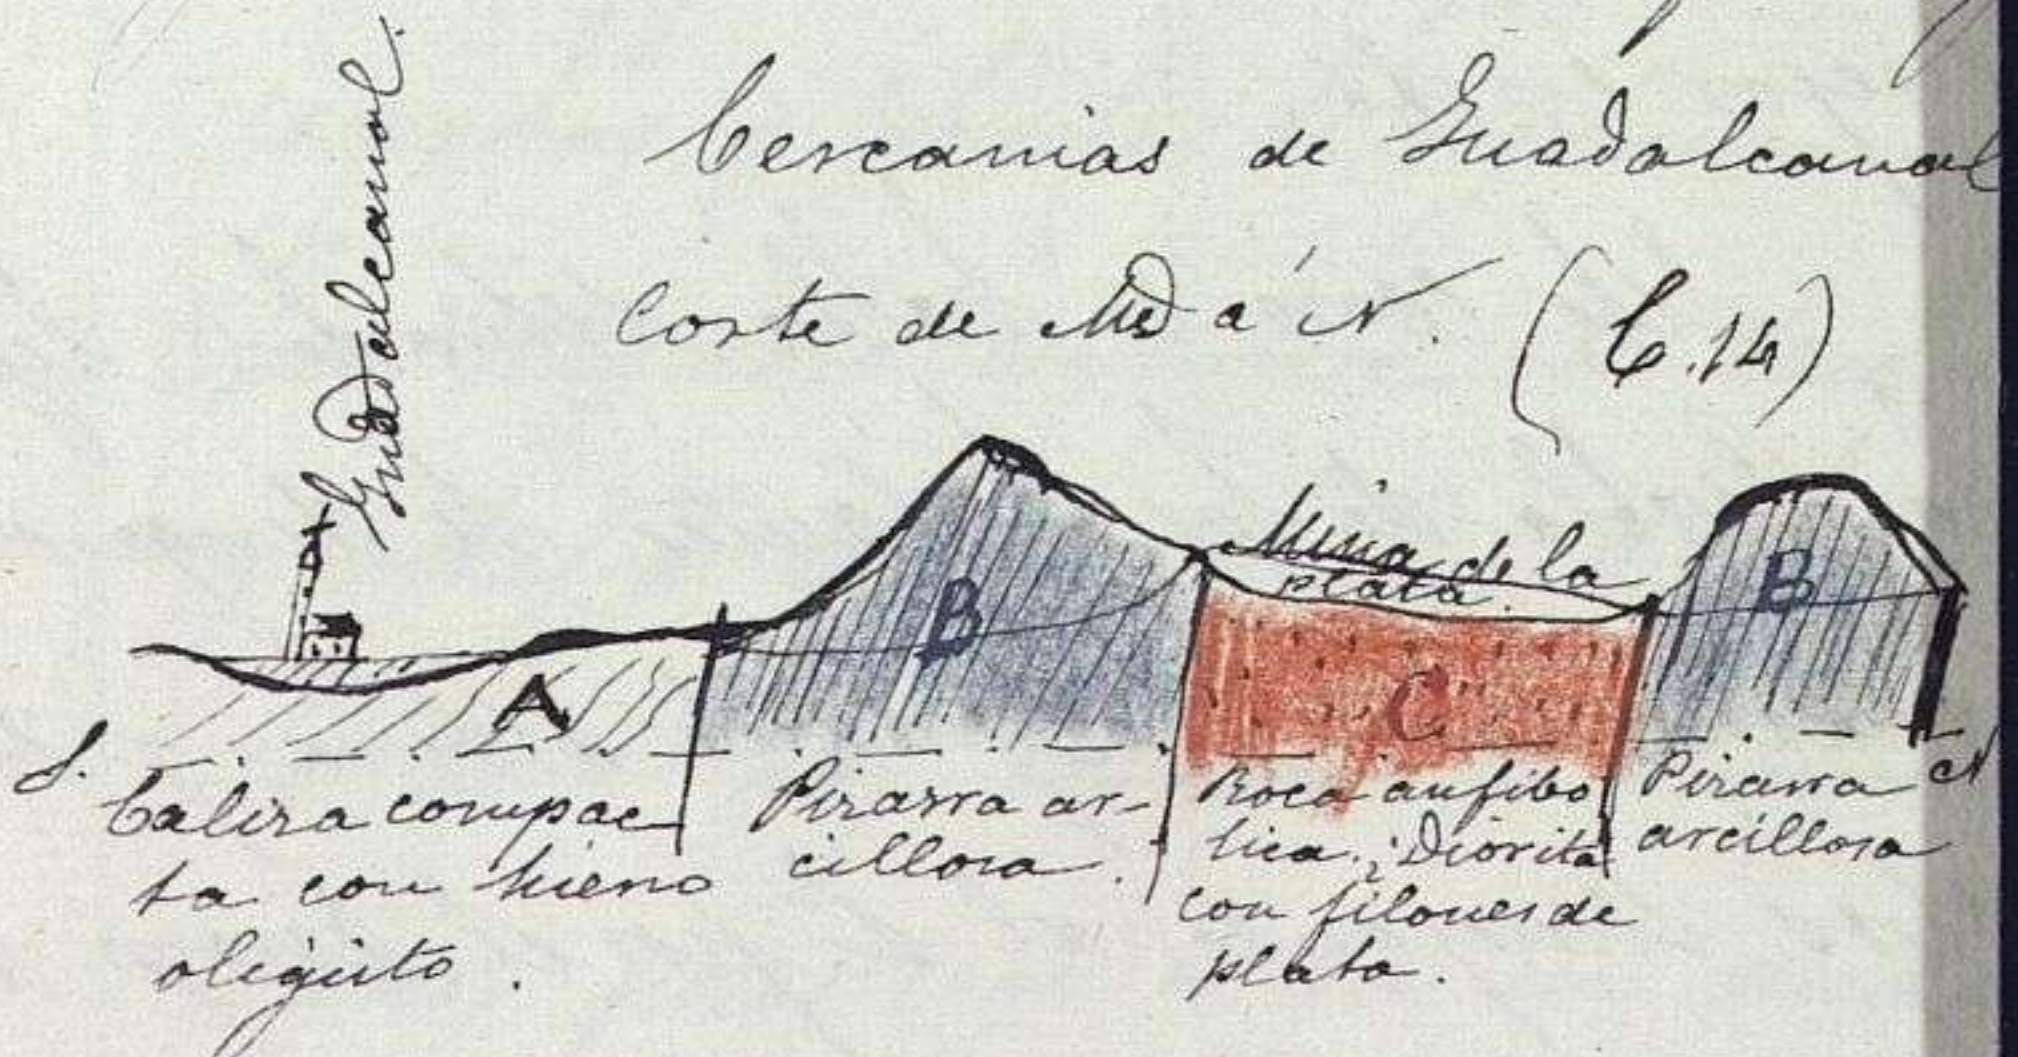 Cercanias de Guadalcanal
Corte de Md a N. (C.14)
Guadalcanal.
Mina de la
plata.
A
B
C
B
S.
N
Caliza compac
ta con hierro
oligisto.
Pizarra ar-
cillosa.
Roca anfibo
lica. ¿Diorita
con filones de
plata.
Pizarra
arcillosa